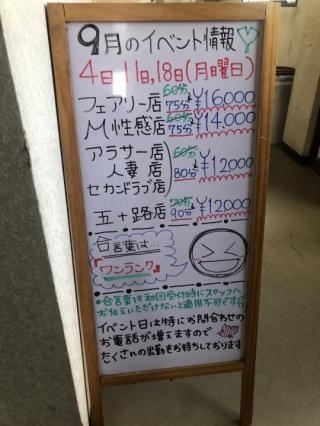 9月のイベント情報
4日,11日,18日(月曜日)
フェアリー店 60分 75分 ¥16,000
M性感店 60分 75分 ¥14,000
アラサー店
人妻店
セカンドラブ店
60分 80分 ¥12,000
五十路店 70分 90分 ¥12,000
合言葉は…
『ワンランク』
合言葉は初回受付時にスタッフへ
お伝えいただけないと適用不可です
イベント日は特にお問合わせの
お電話が増えますので
たくさんの出勤をお待ちしております